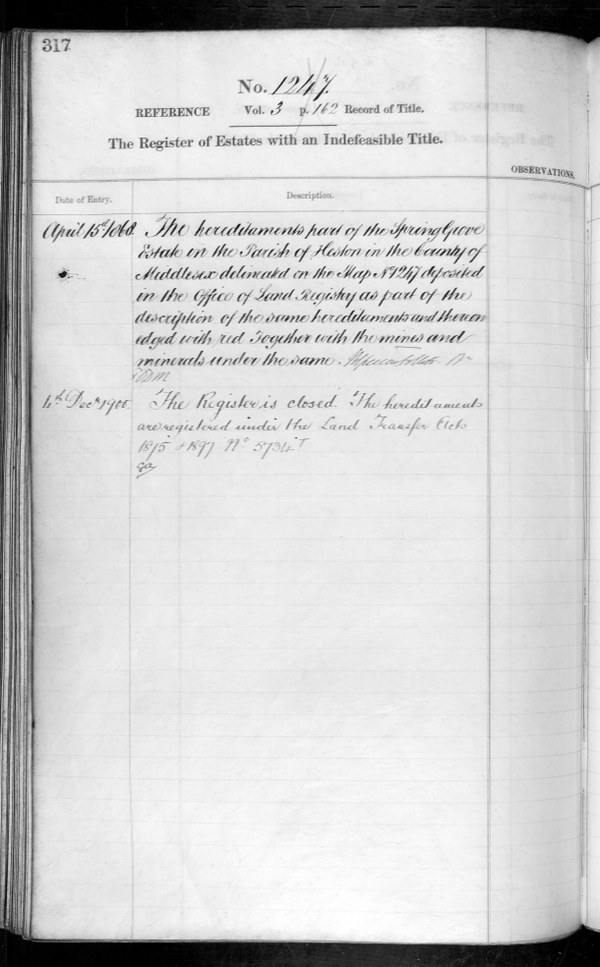 317
No. 1247.
REFERENCE Vol. 3 p. 162 Record of Title.
The Register of Estates with an Indefeasible Title.
OBSERVATIONS.
Date of Entry. Description.
April 15th 1868. The hereditaments part of the Spring Grove
Estate in the Parish of Heston in the County of
Middlesex delineated on the Map No 1247 deposited
in the Office of Land Registry as part of the
description of the same hereditaments and thereon
edged with red Together with the mines and
minerals under the same.
4th Decr 1900. The Register is closed. The hereditaments
are registered under the Land Transfer Acts
1875 & 1897 No 5734